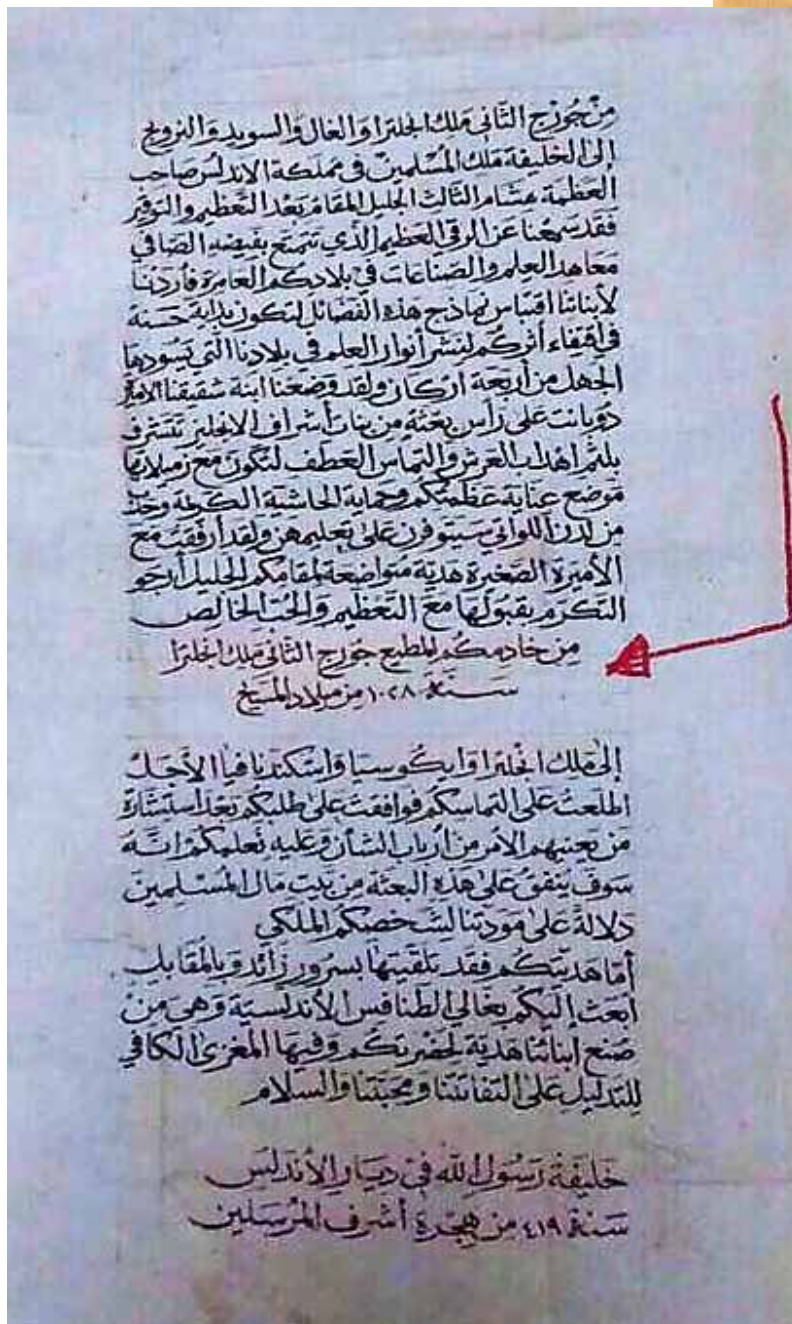 مِنْ جُورْج الثَّانِي مَلك انجلترا وَالغال وَالسويد وَالنرويج
إلى الخليفة مَلك المُسْلمين في مملكة الاندلس صَاحِب
العظمة هشام الثالث الجليل المقام بَعْد التَّعظيم والتوقير
فَقد سَمِعْنا عَن الرقي العَظيم الذي تتمتع بفيضه الصَافي
مَعاهد العلم والصّناعات في بلادكم العامرة فأردنا
لأبنائنا اقتباس نماذج هذه الفضائل لتكون بداية حَسنة
في اقتفاء أثركُم لنشر أنوار العلم في بلادنا التي يَسُودها
الجهل من أربعة أركان ولقد وَضعنا ابنة شقيقنا الامير
دُوبانت على رأس بعثة من بنات أشراف الانجليز تتشرف
بلثم اهداب العرش والتماس العَطف لتكون مع زميلاتها
مَوضع عناية عَظمتكم وحماية الحاشية الكريمة وحدب
من لدن اللواتي سَيتوفرن على تعليمهن ولقد أرفقت مع
الأميرة الصَغيرة هدية مُتواضعة لمقامكم الجليل أرجو
التكرم بقبولها مَعَ التعظيم وَالحُب الخالص
مِن خادمكُم المطيع جُورج الثَّاني مَلك انجلترا
سَنة ١٠٢٨ من ميلاد المسَيح
إلى مَلك انجلترا وَايكوسيا وَاسْكندنافيا الأجَل
اطلعتُ على التماسكم فوافقت على طلبكم بَعْد استشارة
مَن يَعنيهم الأمر من أرباب الشأن وعليه نُعلمكُم انَّه
سَوف يُنفق على هذه البعثة من بَيت مال المُسْلمين
دَلالة على مَودتنا لشخصكم الملكي
أما هَديتكُم فقد تلقيتها بسرور زَائد وَبالمقابل
أبعث إليكم بغالي الطنافس الأندلسية وَهي مِنْ
صُنع ابنائنا هَدية لحَضْرتكم وَفيها المغزى الكافي
للتدليل عَلى التفاتتنا وَمحبّتنا وَالسلام
خليفة رَسُول الله في ديار الأندلس
سَنة ٤١٩ من هجرة أشرف المرسَلين